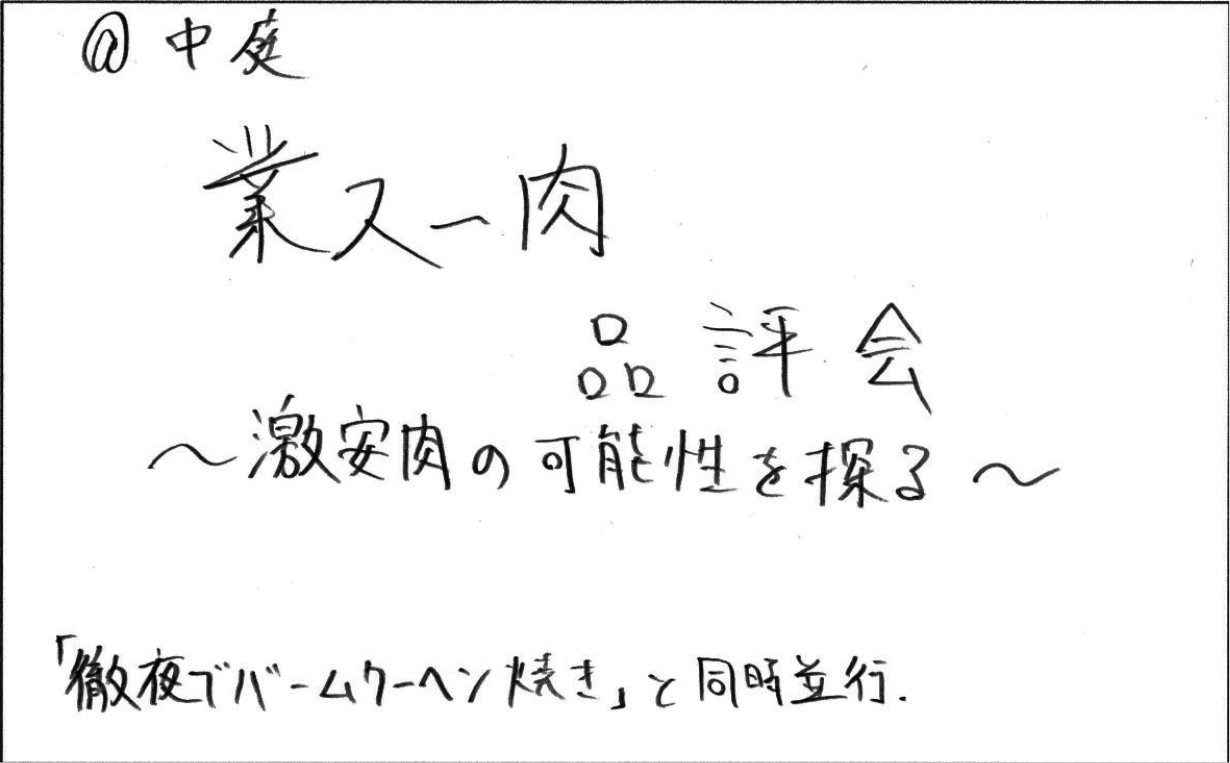 @中庭
業スー肉
品評会
～激安肉の可能性を探る～
「徹夜でバームクーヘン焼き」と同時並行.